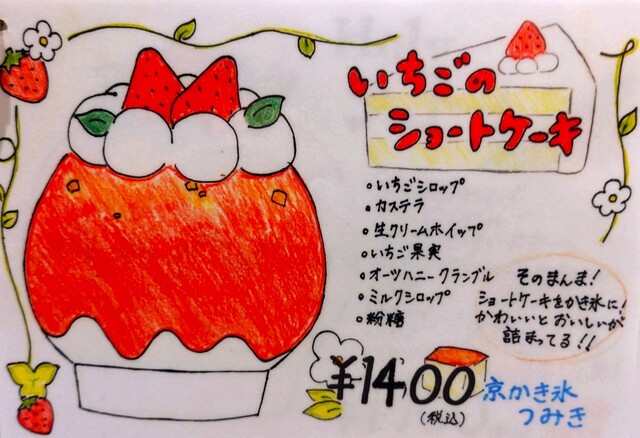 いちごの
ショートケーキ
○いちごシロップ
○カステラ
○生クリームホイップ
○いちご果実
○オーツハニークランブル
○ミルクシロップ
○粉糖
そのまんま!
ショートケーキをかき氷に!
かわいいとおいしいが
詰まってる!!
¥1400
(税込)
京かき氷
つみき